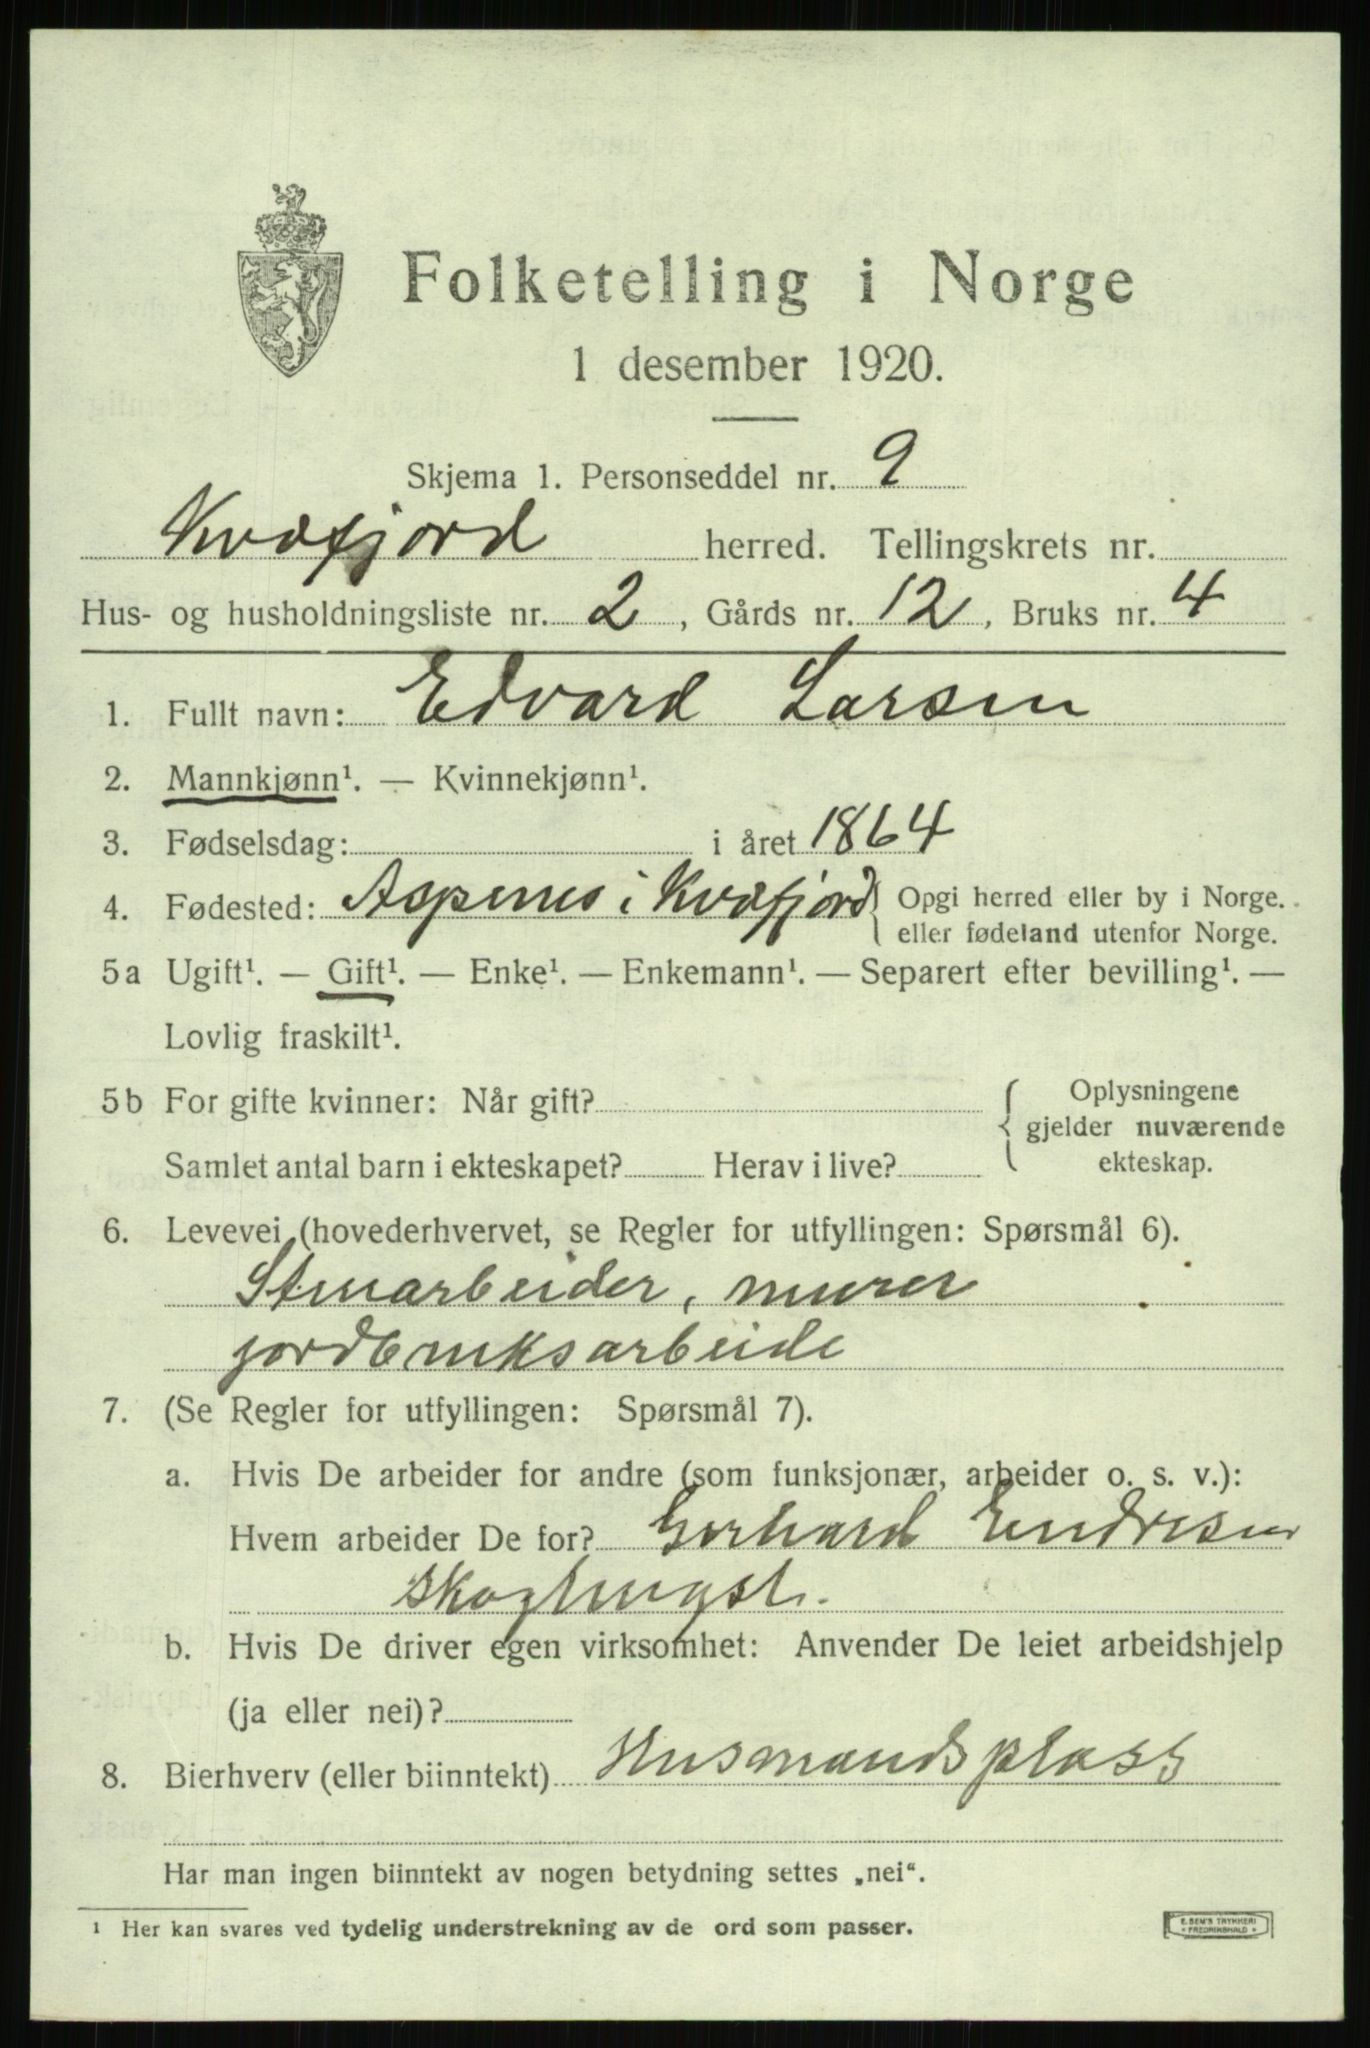 Folketelling i Norge
1 desember 1920.
Skjema 1. Personseddel nr. 9
Kvæfjord herred. Tellingskrets nr.
Hus- og husholdningsliste nr. 2, Gårds nr. 12, Bruks nr. 4
1. Fullt navn: Edvard Larsen
2. Mannkjønn¹. — Kvinnekjønn¹.
3. Fødselsdag: i året 1864
4. Fødested: Aspenes i Kvæfjord { Opgi herred eller by i Norge.
eller fødeland utenfor Norge.
5a Ugift¹. — Gift¹. — Enke¹. — Enkemann¹. — Separert efter bevilling¹. —
Lovlig fraskilt¹.
5b For gifte kvinner: Når gift? { Oplysningene
gjelder nuværende
Samlet antal barn i ekteskapet? Herav i live? ekteskap.
6. Levevei (hovederhvervet, se Regler for utfyllingen: Spørsmål 6).
Stenarbeider, murer
jordbruksarbeide
7. (Se Regler for utfyllingen: Spørsmål 7).
a. Hvis De arbeider for andre (som funksjonær, arbeider o. s. v.):
Hvem arbeider De for? Gerhard Endresen
b. Hvis De driver egen virksomhet: Anvender De leiet arbeidshjelp
(ja eller nei)?
8. Bierhverv (eller biinntekt) Husmandsplass
Har man ingen biinntekt av nogen betydning settes „nei“.
¹ Her kan svares ved tydelig understrekning av de ord som passer.
E. SEM'S TRYKKERI
FREDRIKSHALD